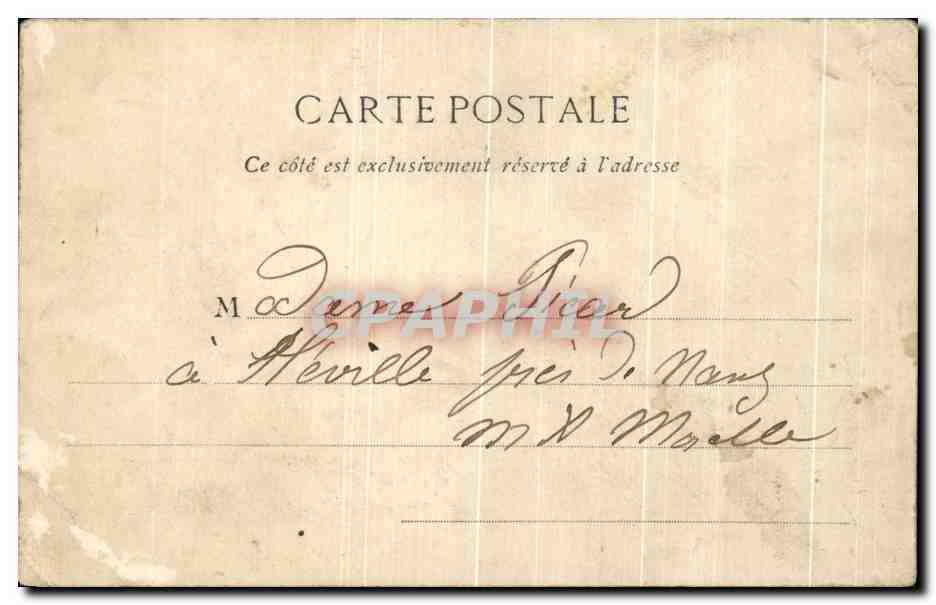 CARTE POSTALE
Ce côté est exclusivement réservé à l'adresse
Madame Picard
à Héville près de Nancy
M & Moselle
CPAPHIL